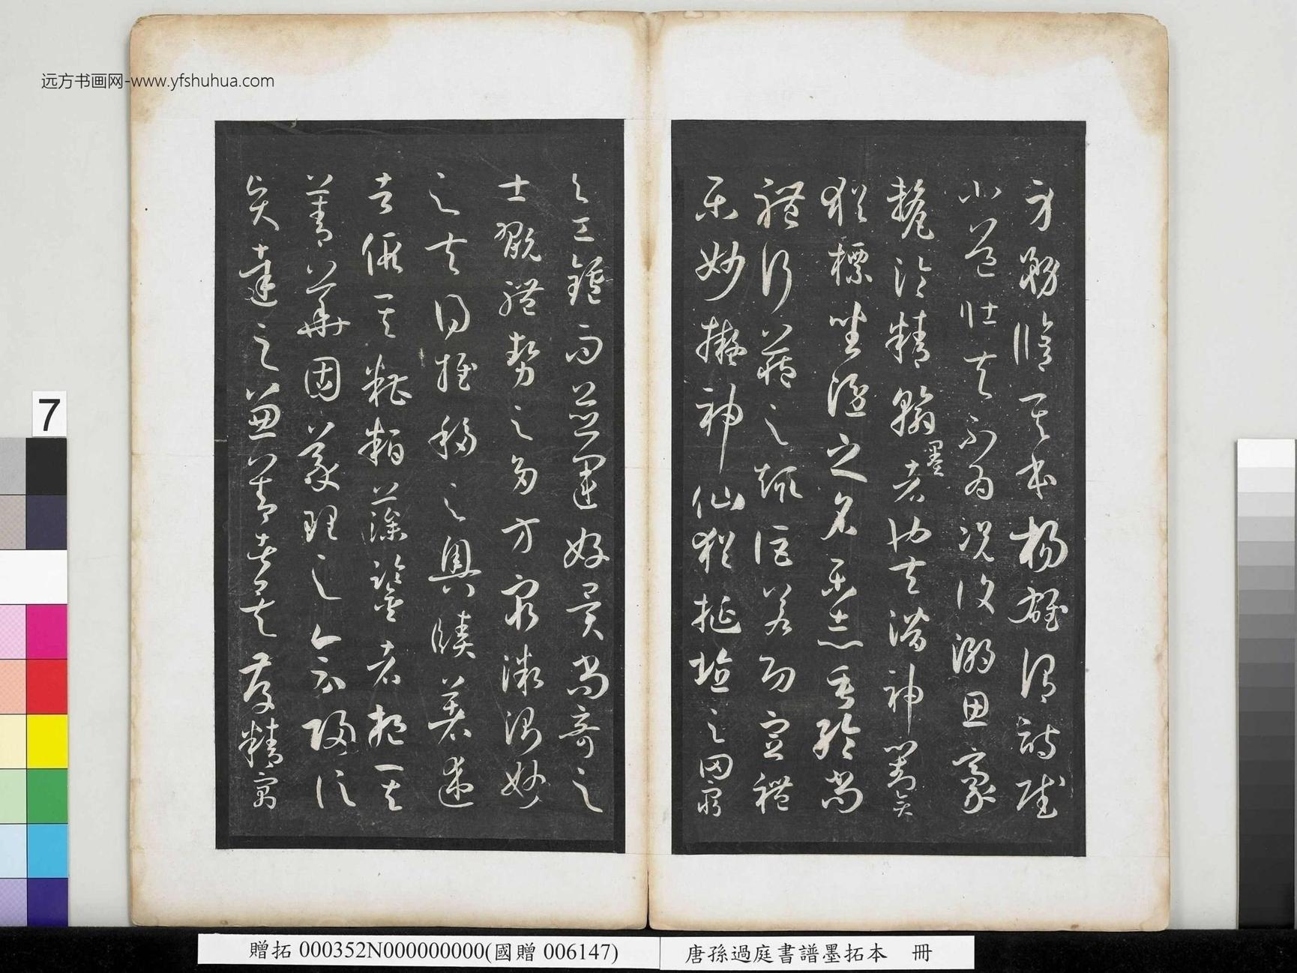 远方书画网-www.yfshuhua.com
身務脩其本楊雄謂詩賦
小道壯夫不為況復溺思豪
氂淪精翰墨者也夫潛神對奕
猶標坐隱之名樂志垂綸尚
體行藏之趣詎若功宣禮
樂妙擬神仙猶埏埴之罔窮
與工鑪而並運好異尚奇之
士翫體勢之多方窮微測妙
之夫得推移之奧賾著述
者假其糟粕藻鑒者挹其
菁華固義理之會歸信
賢達之兼善者矣存精寓
7
贈拓 000352N000000000(國贈 006147)
唐孫過庭書譜墨拓本 冊